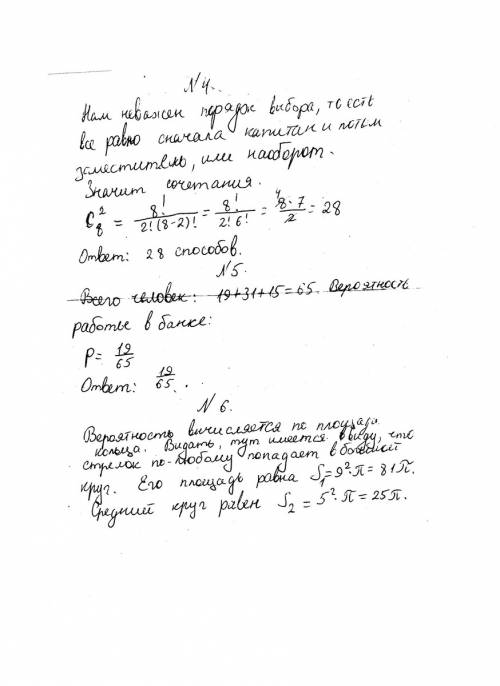 №4.
Нам неважен порядок выбора, то есть
все равно сначала капитан и потом
заместитель, или наоборот.
Значит сочетания.
C₈² = 8!/2!(8-2)! = 8!/2!6! = 8·7/2 = 28
Ответ: 28 способов.
№5.
Всего человек: 19+31+15=65. Вероятность
работы в банке:
P = 19/65
Ответ: 19/65.
№6.
Вероятность вычисляется по площади
кольца. Видать, тут имеется ввиду, что
стрелок по-любому попадает в большой
круг. Его площадь равна S₁=9²·π=81π.
Средний круг равен S₂=5²·π=25π.